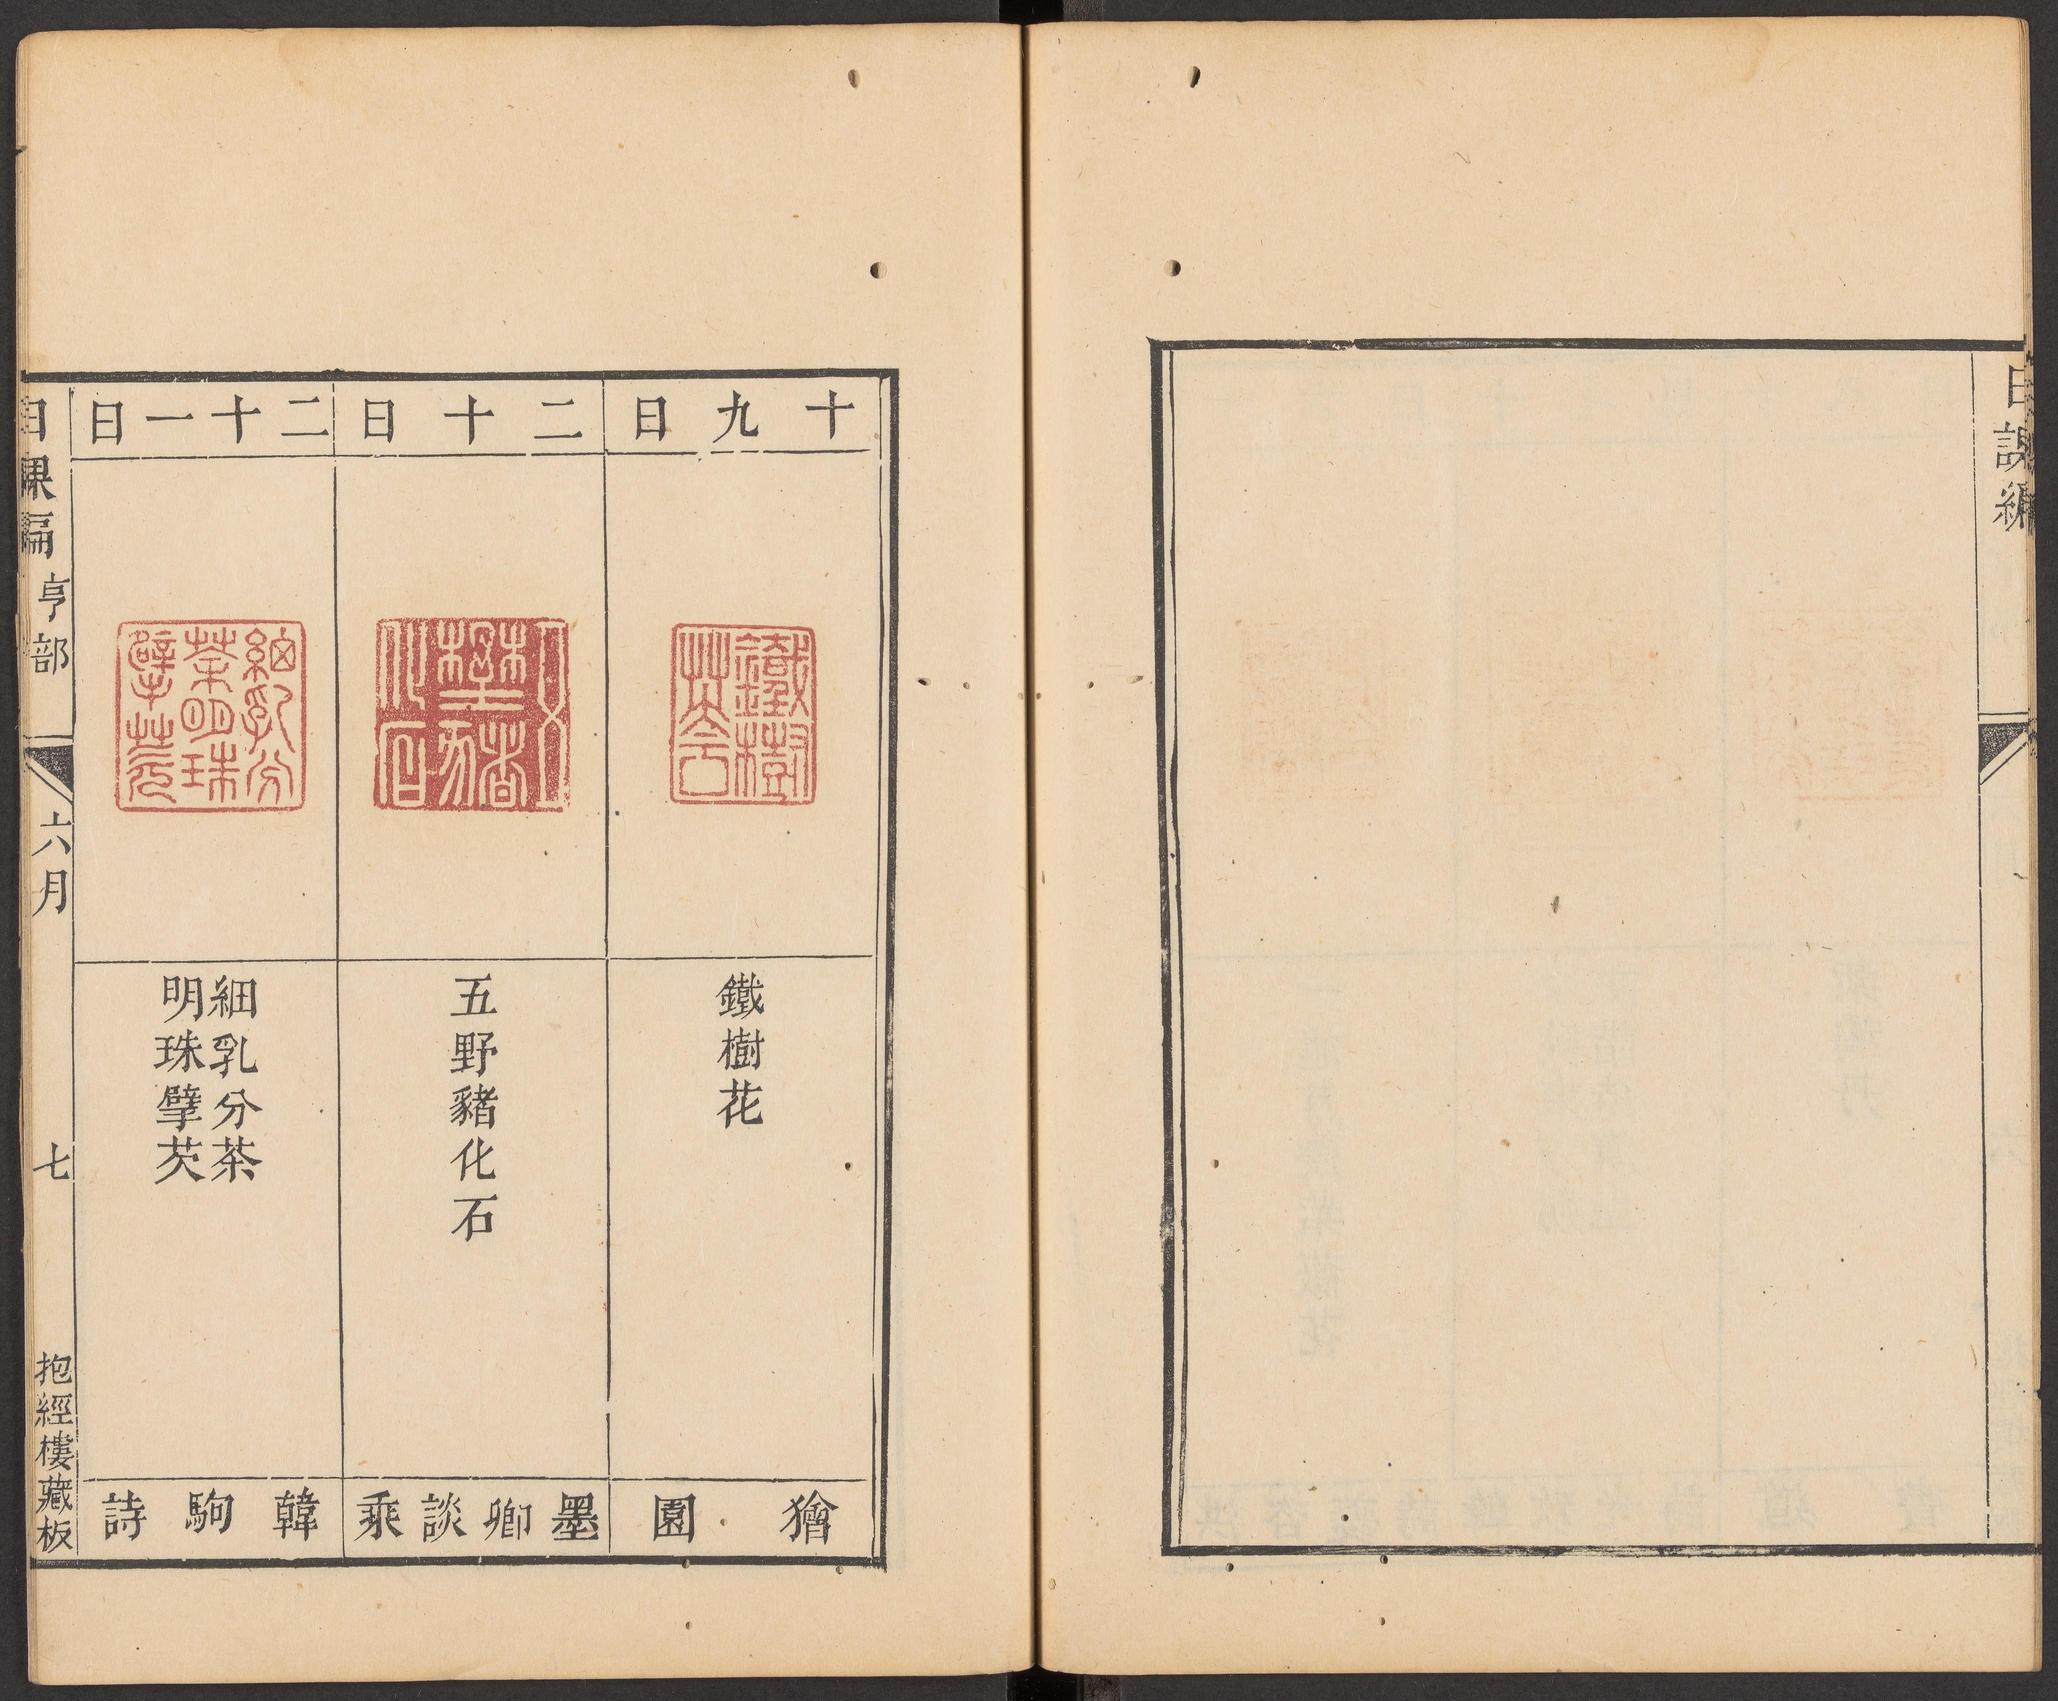 日課編
十九日
鐵樹花
獪園
二十日
五野豬化石
墨卿談乘
二十一日
細乳分茶
明珠擘芡
韓駒詩
日課編 亨部
六月
七
抱經樓藏板